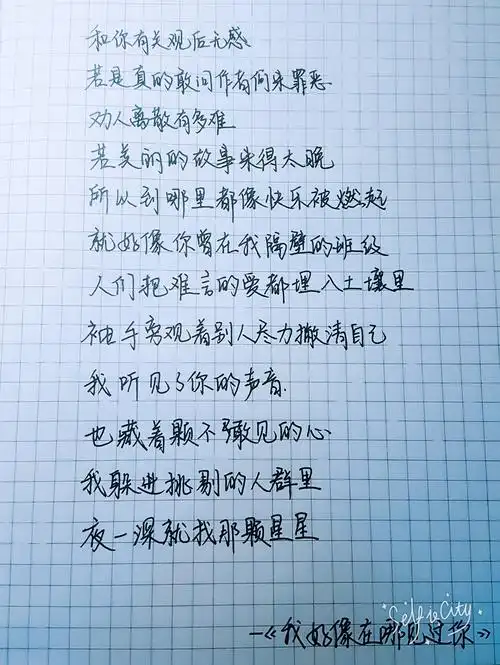 和你有关观后无感
若是真的敢问作者何来罪恶
劝人离散有多难
若美丽的故事来得太晚
所以到哪里都像快乐被燃起
就好像你曾在我隔壁的班级
人们把难言的爱都埋入土壤里
袖手旁观着别人尽力撇清自己
我听见了你的声音
也藏着颗不敢见的心
我躲进挑剔的人群里
夜一深就找那颗星星
Selfie City
—《我好像在哪见过你》